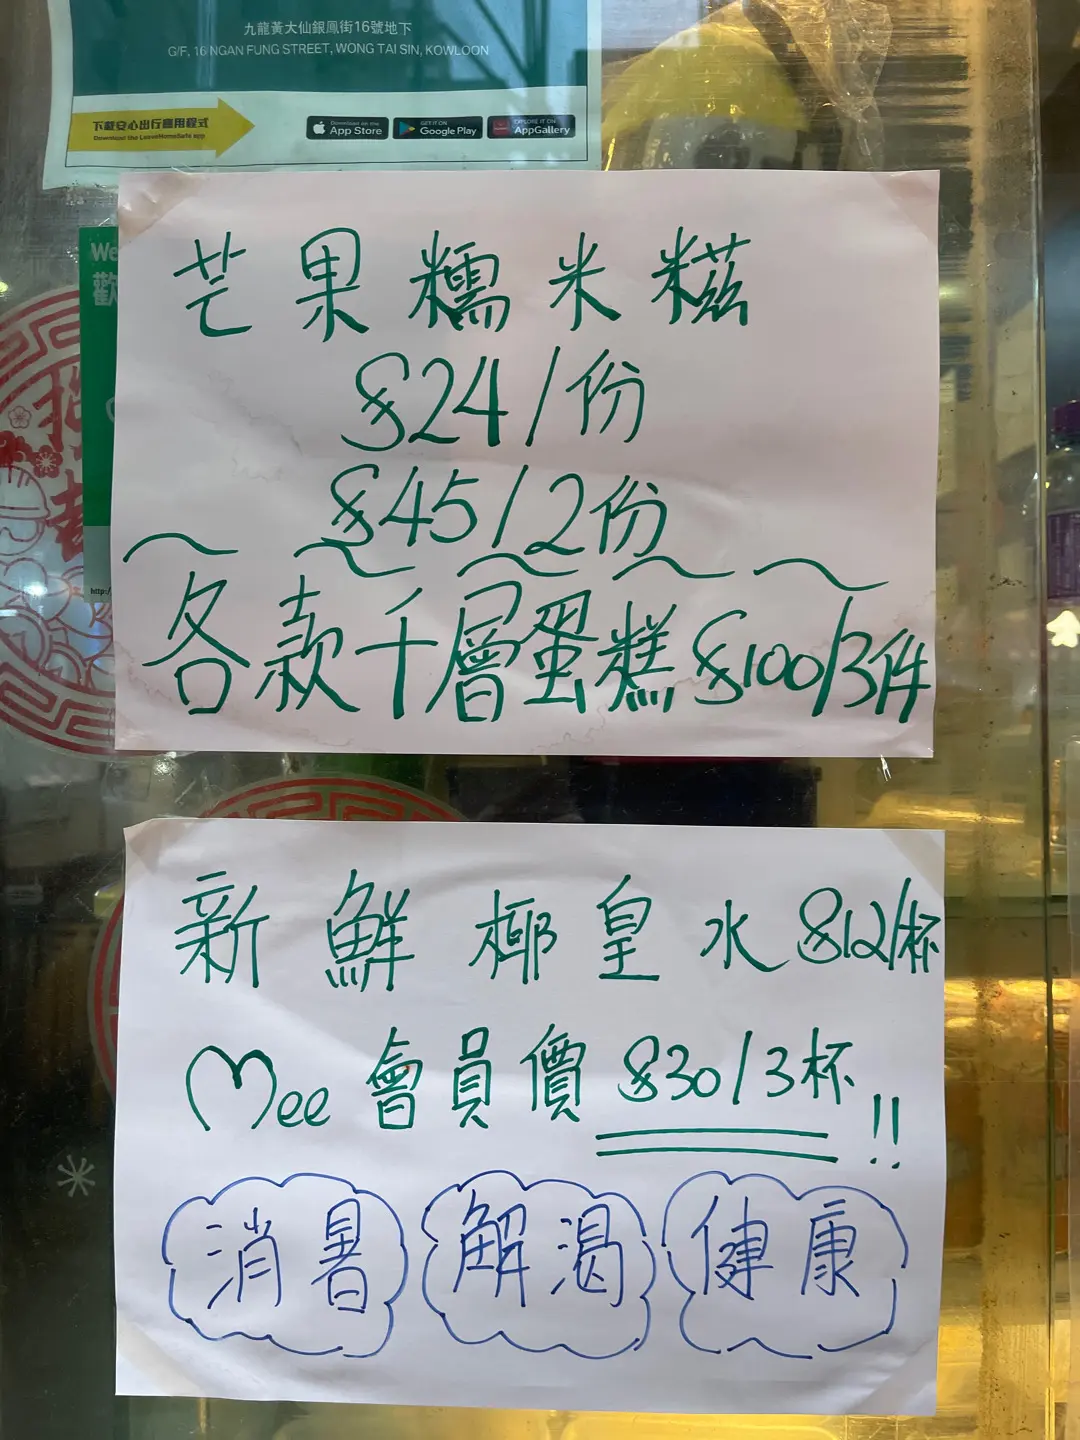 九龍黃大仙銀鳳街16號地下
G/F, 16 NGAN FUNG STREET, WONG TAI SIN, KOWLOON
下載安心出行應用程式
Download the LeaveHomeSafe app
Download on the App Store
GET IT ON Google Play
EXPLORE IT ON AppGallery
芒果糯米糍
$24/份
$45/2份
各款千層蛋糕$100/3件
We
歡
http:/
新鮮椰皇水$12/杯
Mee會員價$30/3杯!!
消暑 解渴 健康